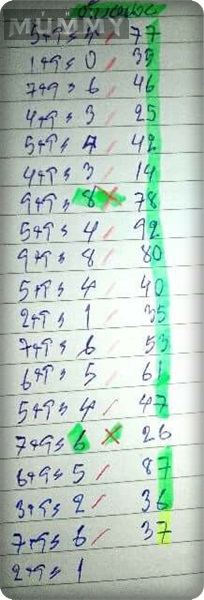 MUMMY
5+9=4 / 77
1+9=0 / 35
7+9=6 / 46
4+9=3 / 25
5+9=4 / 42
4+9=3 / 14
9+9=8 × 78
5+9=4 / 92
9+9=8 / 80
5+9=4 / 40
2+9=1 / 35
7+9=6 / 53
6+9=5 / 61
5+9=4 / 47
7+9=6 × 26
6+9=5 / 87
3+9=2 / 36
7+9=6 / 37
2+9=1